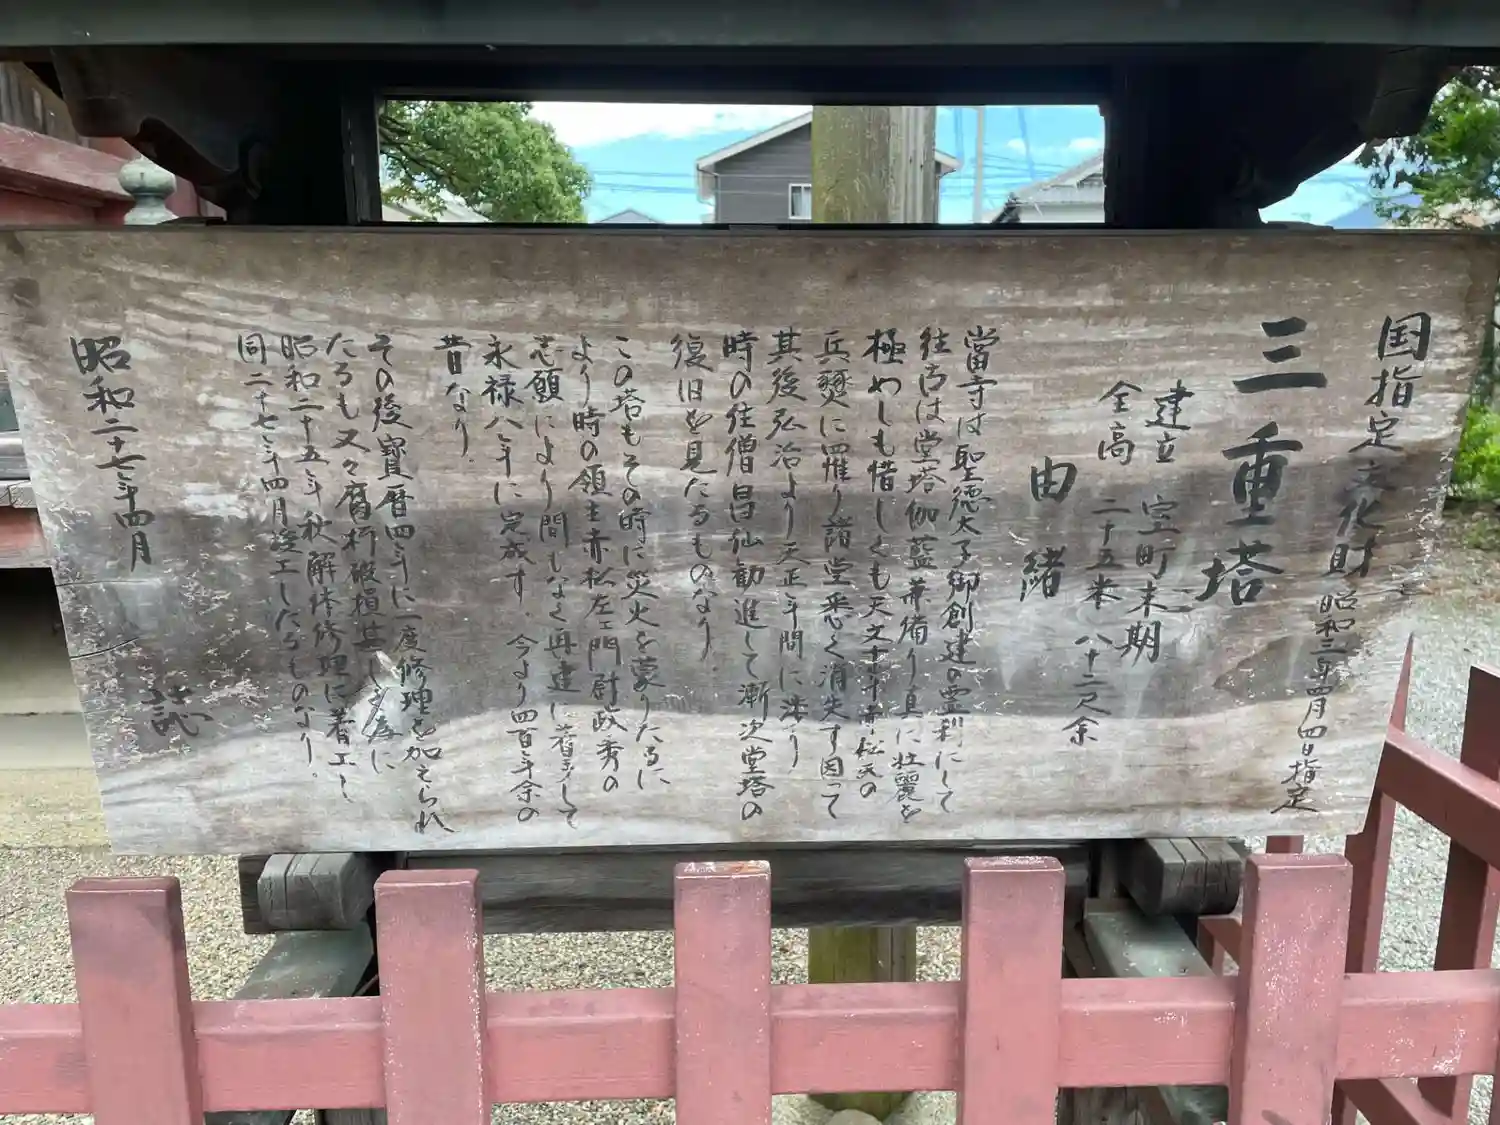 国指定文化財
昭和三年四月四日指定
三重塔
建立 室町末期
全高 二十五米 八十二尺余
由緒
當寺は聖徳太子御創建の霊刹にして
往古は堂塔伽藍兼備り真に壮麗を
極めしも惜しくも天文十年赤松氏の
兵燹に罹り諸堂悉く消失す因って
其後弘治より天正年間に渉り
時の住僧昌仙勧進して漸次堂塔の
復旧を見たるものなり。
この塔もその時に災火を蒙りたるに
より時の領主赤松左ェ門尉政秀の
志願により間もなく再建に着手して
永禄八年に完成す。今より四百年余の
昔なり。
その後寳暦四年に一度修理を加えられ
たるも又々腐朽破損甚しき為に
昭和二十五年秋解体修理に着工し
同二十七年四月竣工したるものなり。
昭和二十七年四月
誌